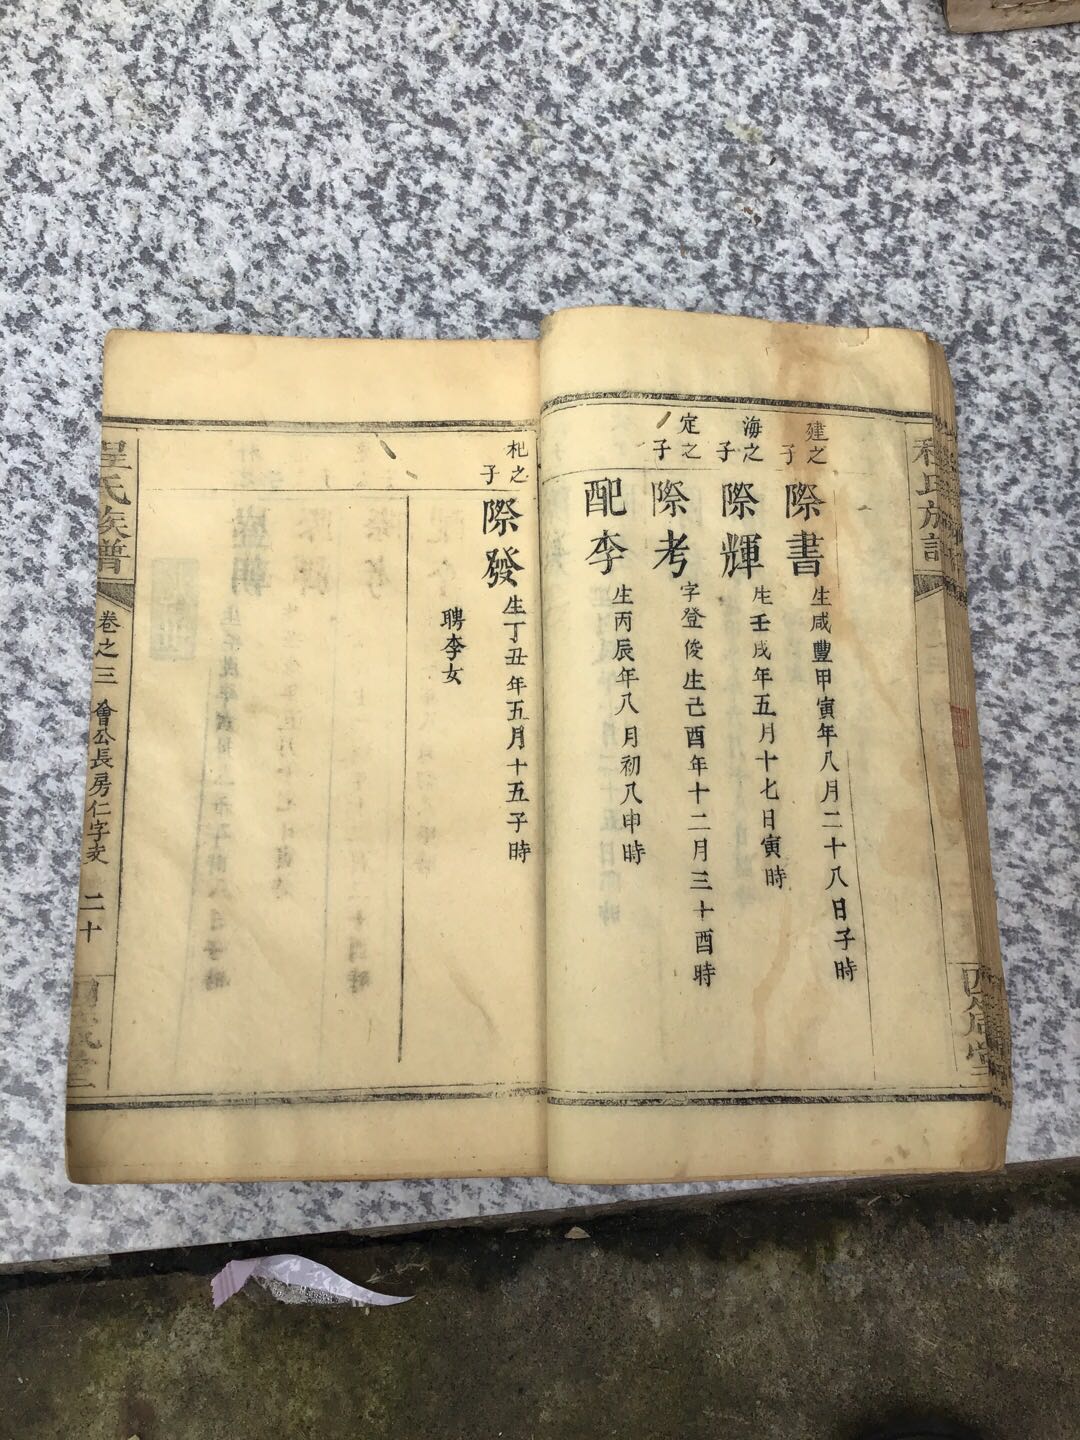 建之子
際書
生咸豐甲寅年八月二十八日子時
海之子
際輝
生壬戌年五月十七日寅時
定之子
際考
字登俊生己酉年十二月三十酉時
配李
生丙辰年八月初八申時
杞之子
際發
生丁丑年五月十五子時
聘李女
程氏族譜
卷之三
會公長房仁字支
二十